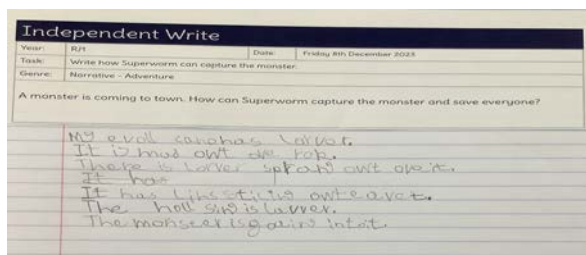 Independent Write
Year: R/1 Date: Friday 8th December 2023
Task: Write how Superworm can capture the monster.
Genre: Narrative - Adventure
A monster is coming to town. How can Superworm capture the monster and save everyone?
My evoll has
It is mud owt the rop.
There is owt ove it.
It has
It has sticing owt
The holl is lavver.
The monster is going into it.